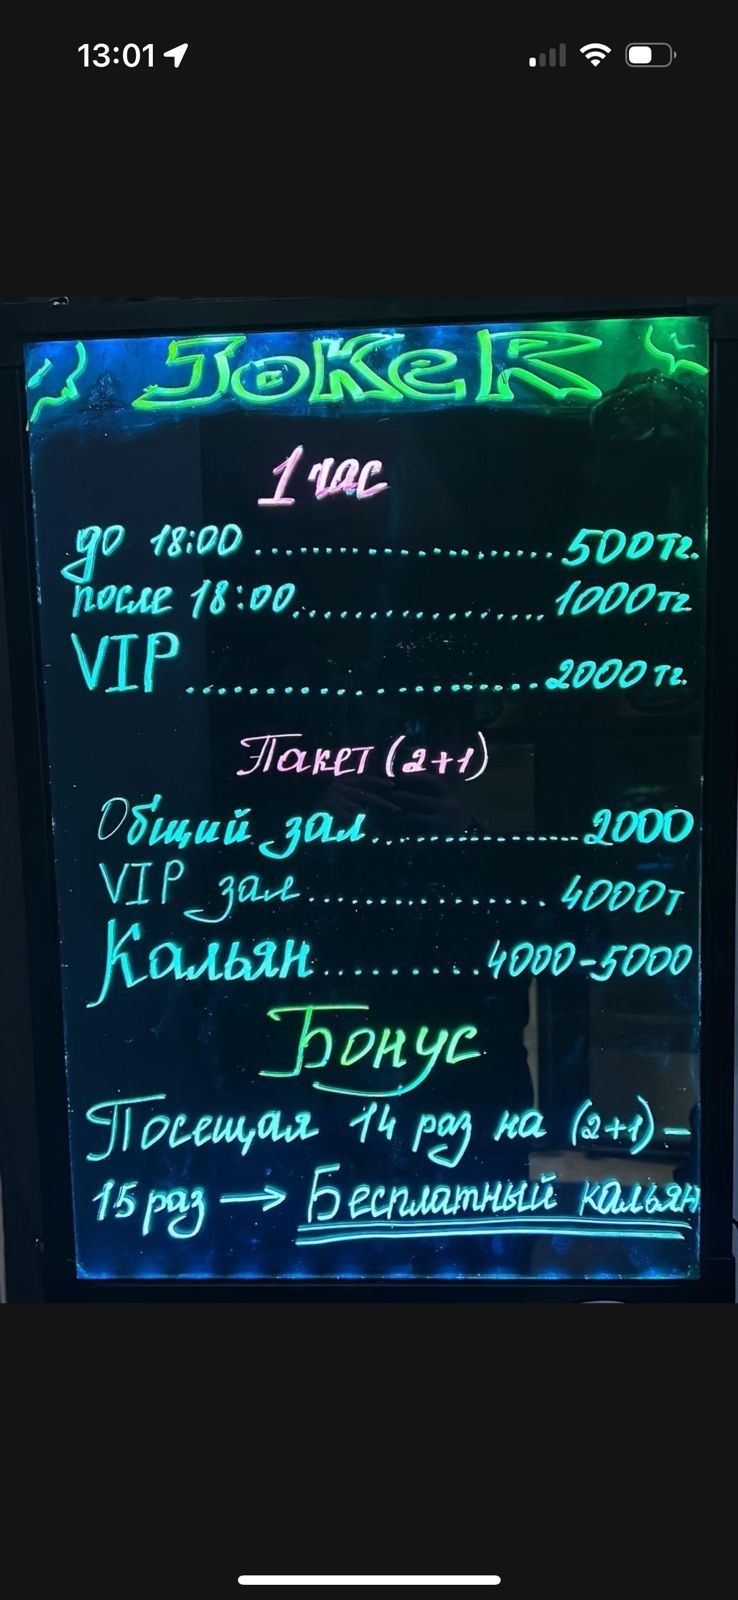 13:01
JOKER
1 час
до 18:00......................500тг.
после 18:00..................1000тг
VIP...........................2000 тг.
Пакет (2+1)
Общий зал................2000
VIP зал.................4000т
Кальян.........4000-5000
Бонус
Посещая 14 раз на (2+1) –
15 раз → Бесплатный кальян